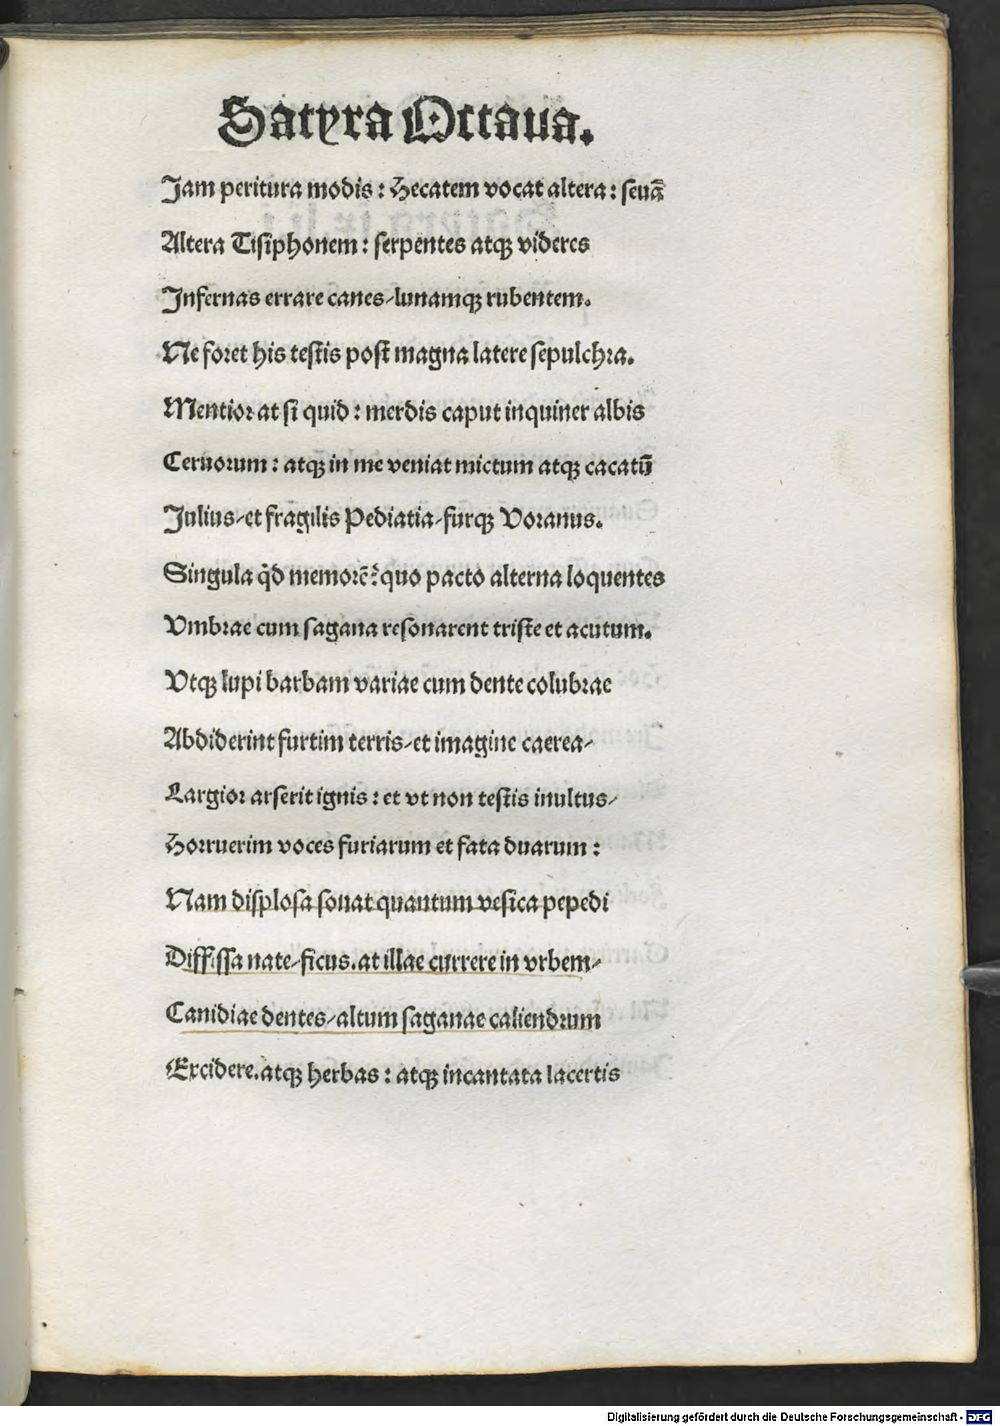 Satyra Octaua.
Jam peritura modis: Hecatem vocat altera: seuā
Altera Tisiphonem: serpentes atqꝫ videres
Infernas errare canes/lunamqꝫ rubentem.
Ne foret his testis post magna latere sepulchra.
Mentior at si quid: merdis caput inquiner albis
Ceruorum: atqꝫ in me veniat mictum atqꝫ cacatū
Julius/et fragilis Pediatia/furqꝫ Voranus.
Singula qͥd memorē? quo pacto alterna loquentes
Vmbrae cum sagana resonarent triste et acutum.
Vtqꝫ lupi barbam variae cum dente colubrae
Abdiderint furtim terris/et imagine caerea/
Largior arserit ignis: et vt non testis inultus/
Horruerim voces furiarum et fata duarum:
Nam displosa sonat quantum vesica pepedi
Diffissa nate/ficus.at illae currere in vrbem/
Canidiae dentes/altum saganae caliendrum
Excidere.atqꝫ herbas: atqꝫ incantata lacertis
Digitalisierung gefördert durch die Deutsche Forschungsgemeinschaft - DFG